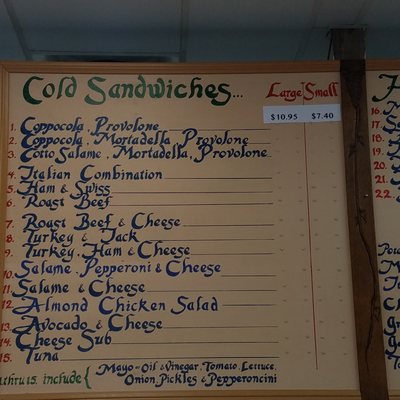 Cold Sandwiches... Large Small
$10.95 $7.40
1. Coppocola, Provolone
2. Coppocola, Mortadella, Provolone
3. Cotto Salame, Mortadella, Provolone
4. Italian Combination
5. Ham & Swiss
6. Roast Beef
7. Roast Beef & Cheese
8. Turkey & Jack
9. Turkey, Ham & Cheese
10. Salame, Pepperoni & Cheese
11. Salame & Cheese
12. Almond Chicken Salad
13. Avocado & Cheese
14. Cheese Sub
15. Tuna
thru 15. include { Mayo-Oil & Vinegar, Tomato, Lettuce,
Onion, Pickles & Pepperoncini
H
16.
17.
18.
19.
20.
21.
22